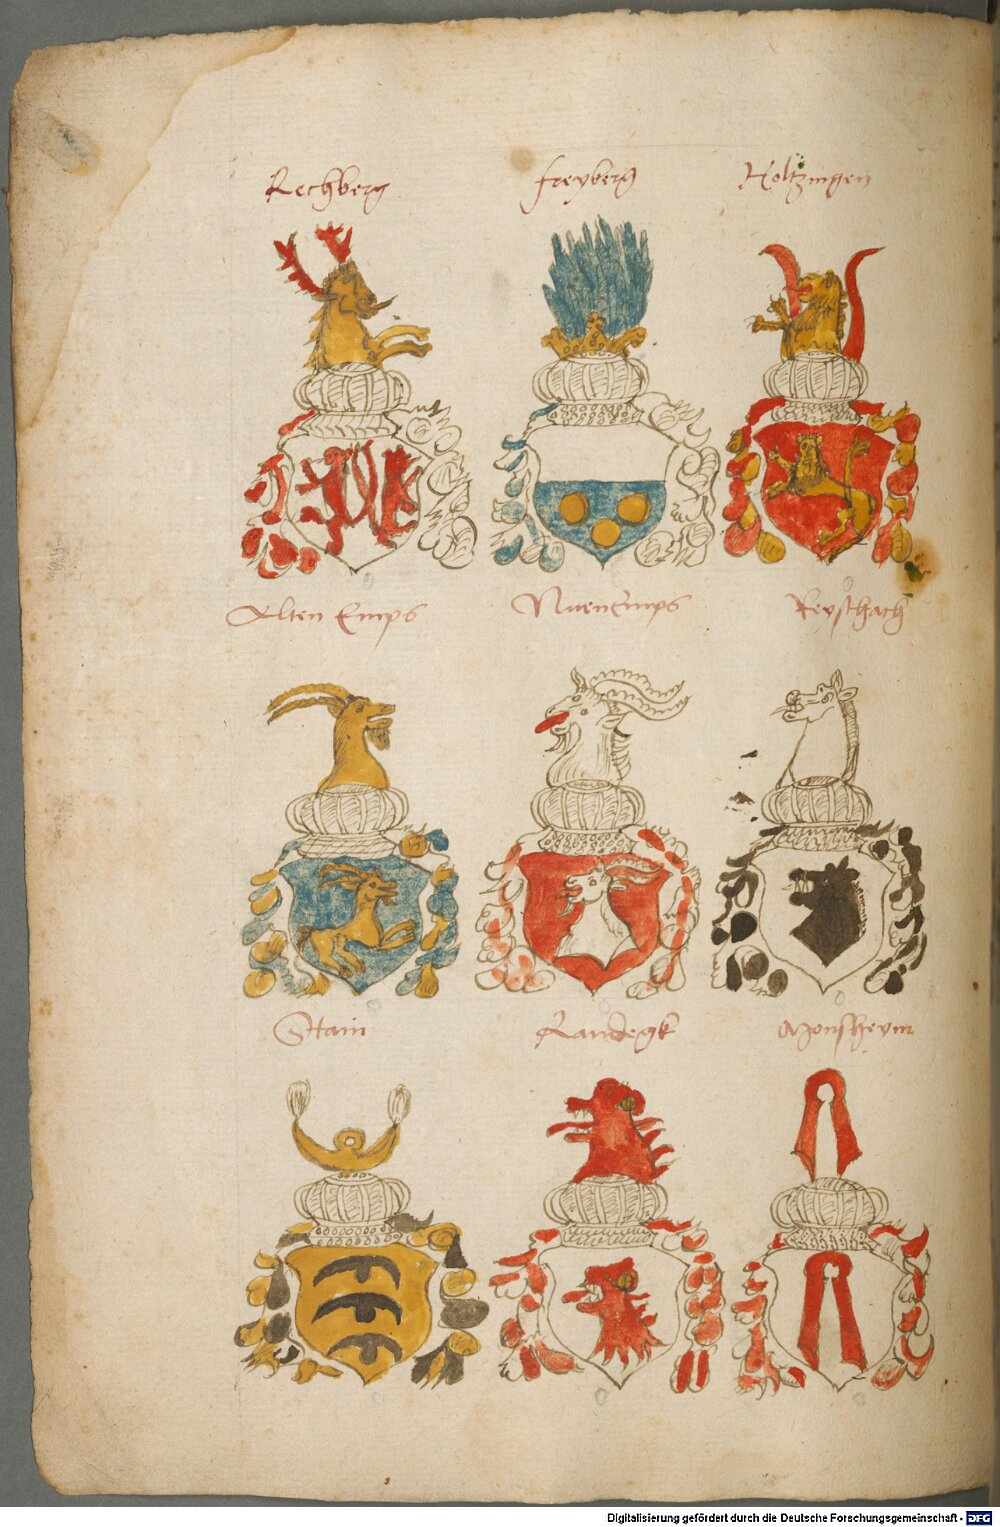 Rechberg freyberg Holtzingen
Alten Emps Nuenemps Reyschach
Stain Randegk Monsheym
Digitalisierung gefördert durch die Deutsche Forschungsgemeinschaft - DFG